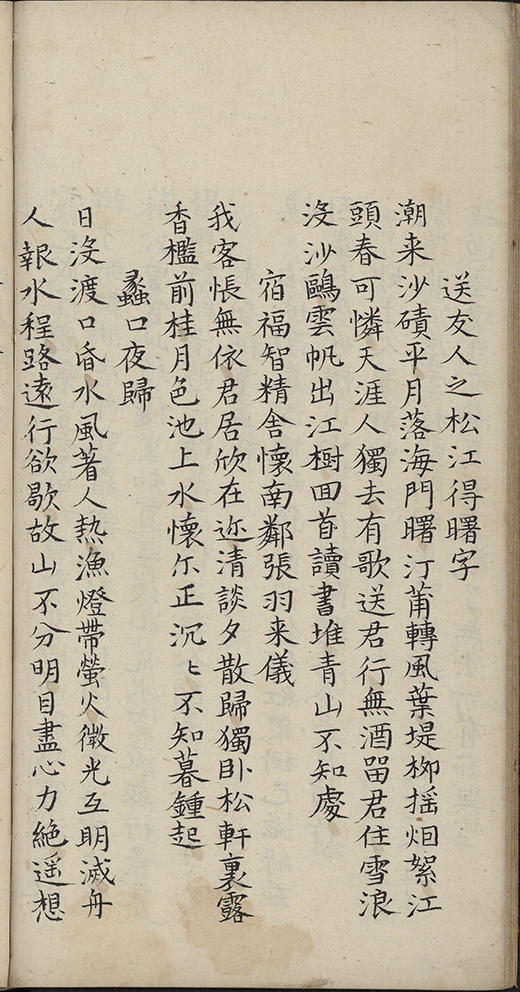 送友人之松江得曙字
潮来沙磧平月落海門曙汀莆轉風葉堤栁揺烟絮江
頭春可憐天涯人獨去有歌送君行無酒畱君住雪浪
没沙鷗雲帆出江樹回首讀書堆青山不知處
宿福智精舎懷南鄰張羽来儀
我客悵無依君居欣在迩清談夕散歸獨卧松軒裏露
香檻前桂月色池上水懷尓正沉〻不知暮鍾起
蠡口夜歸
日没渡口昏水風著人熱漁燈帶螢火微光互明滅舟
人報水程路遠行欲歇故山不分明目盡心力絶遥想